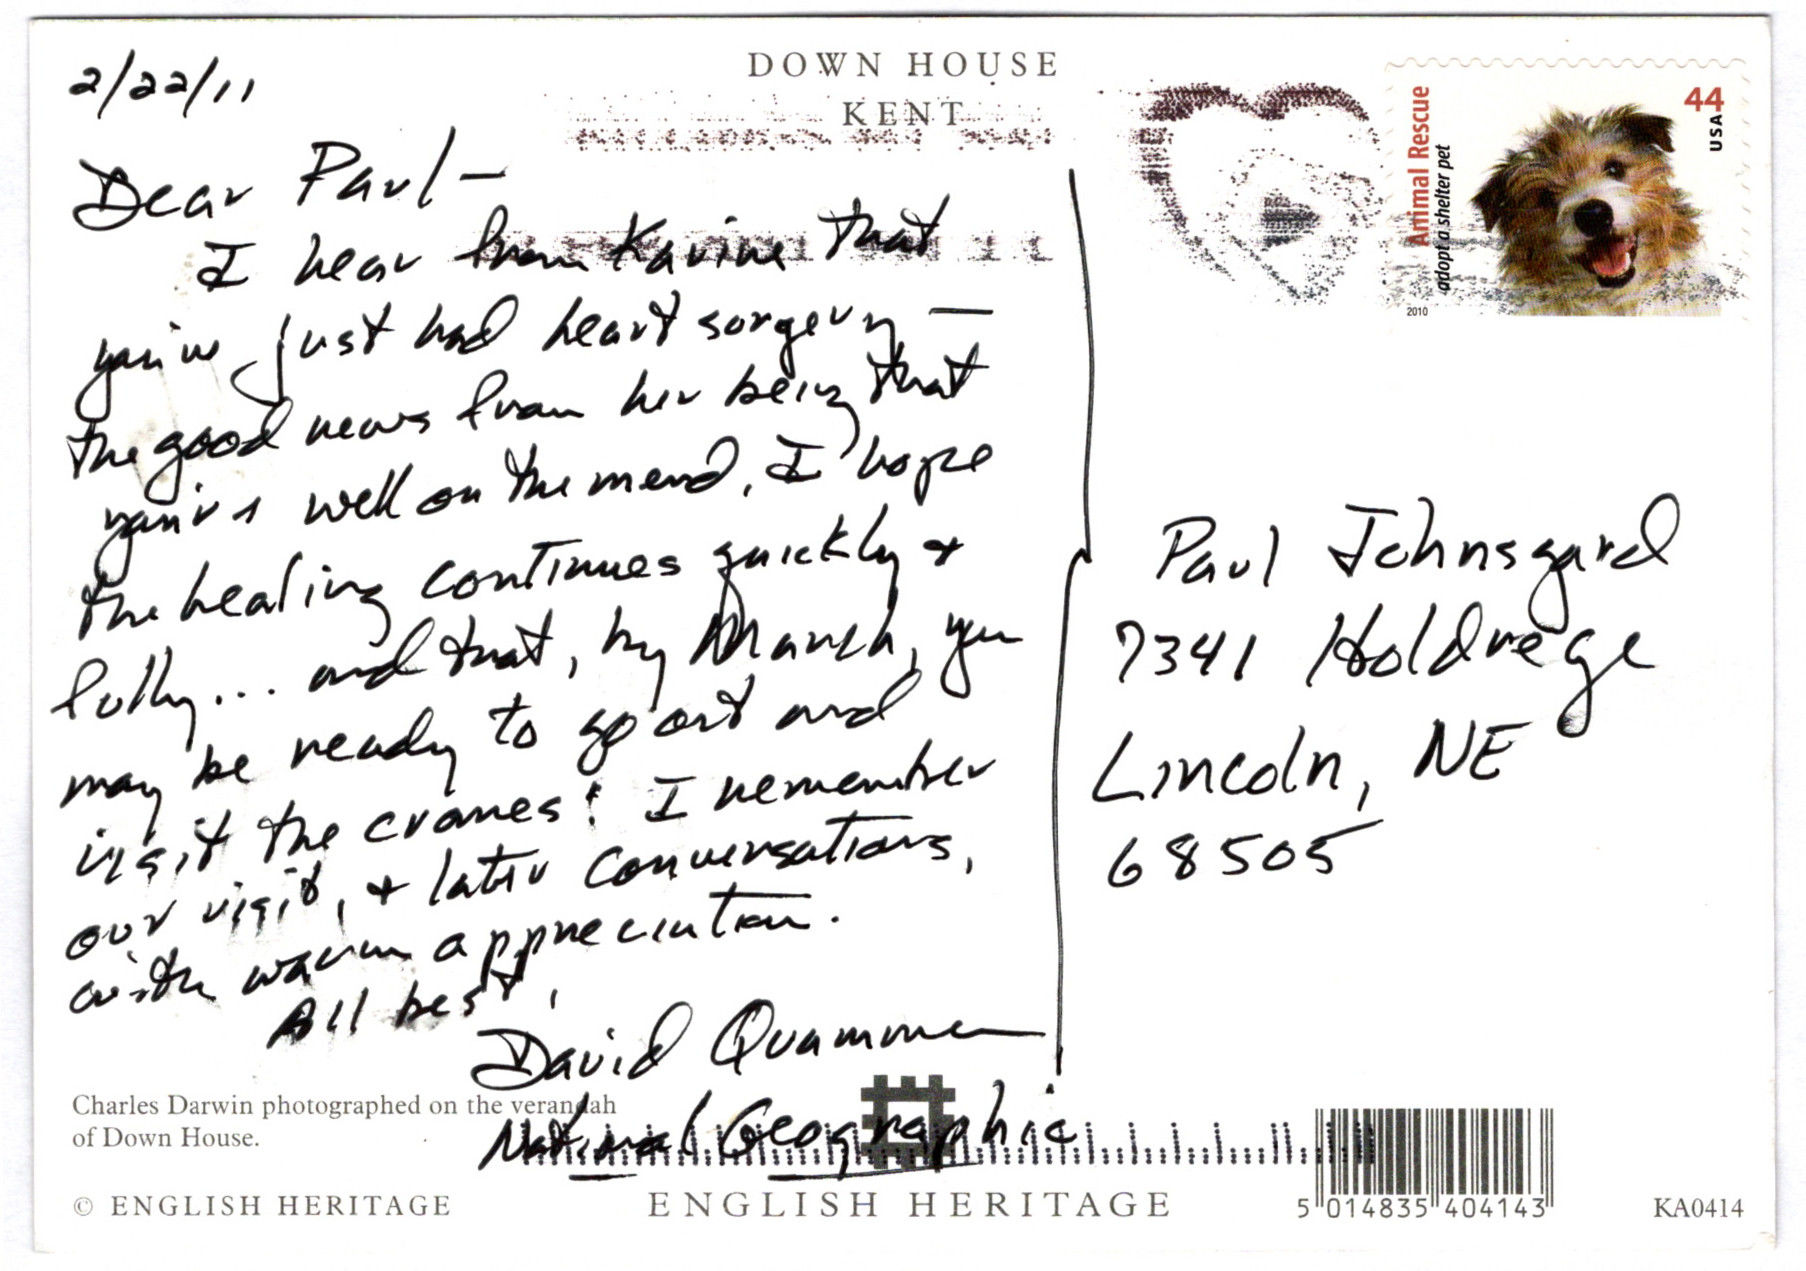 DOWN HOUSE
KENT
2/22/11
Dear Paul—
I hear from Karine that
you've just had heart surgery —
the good news from her being that
you're well on the mend. I hope
the healing continues quickly &
fully... and that, by March, you
may be ready to go out and
visit the cranes! I remember
our visit, & later conversations,
with warm appreciation.
All best,
David Quammen
National Geographic
Charles Darwin photographed on the verandah
of Down House.
© ENGLISH HERITAGE
ENGLISH HERITAGE
Animal Rescue
adopt a shelter pet
44
USA
2010
Paul Johnsgard
7341 Holdrege
Lincoln, NE
68505
5 014835 404143
KA0414